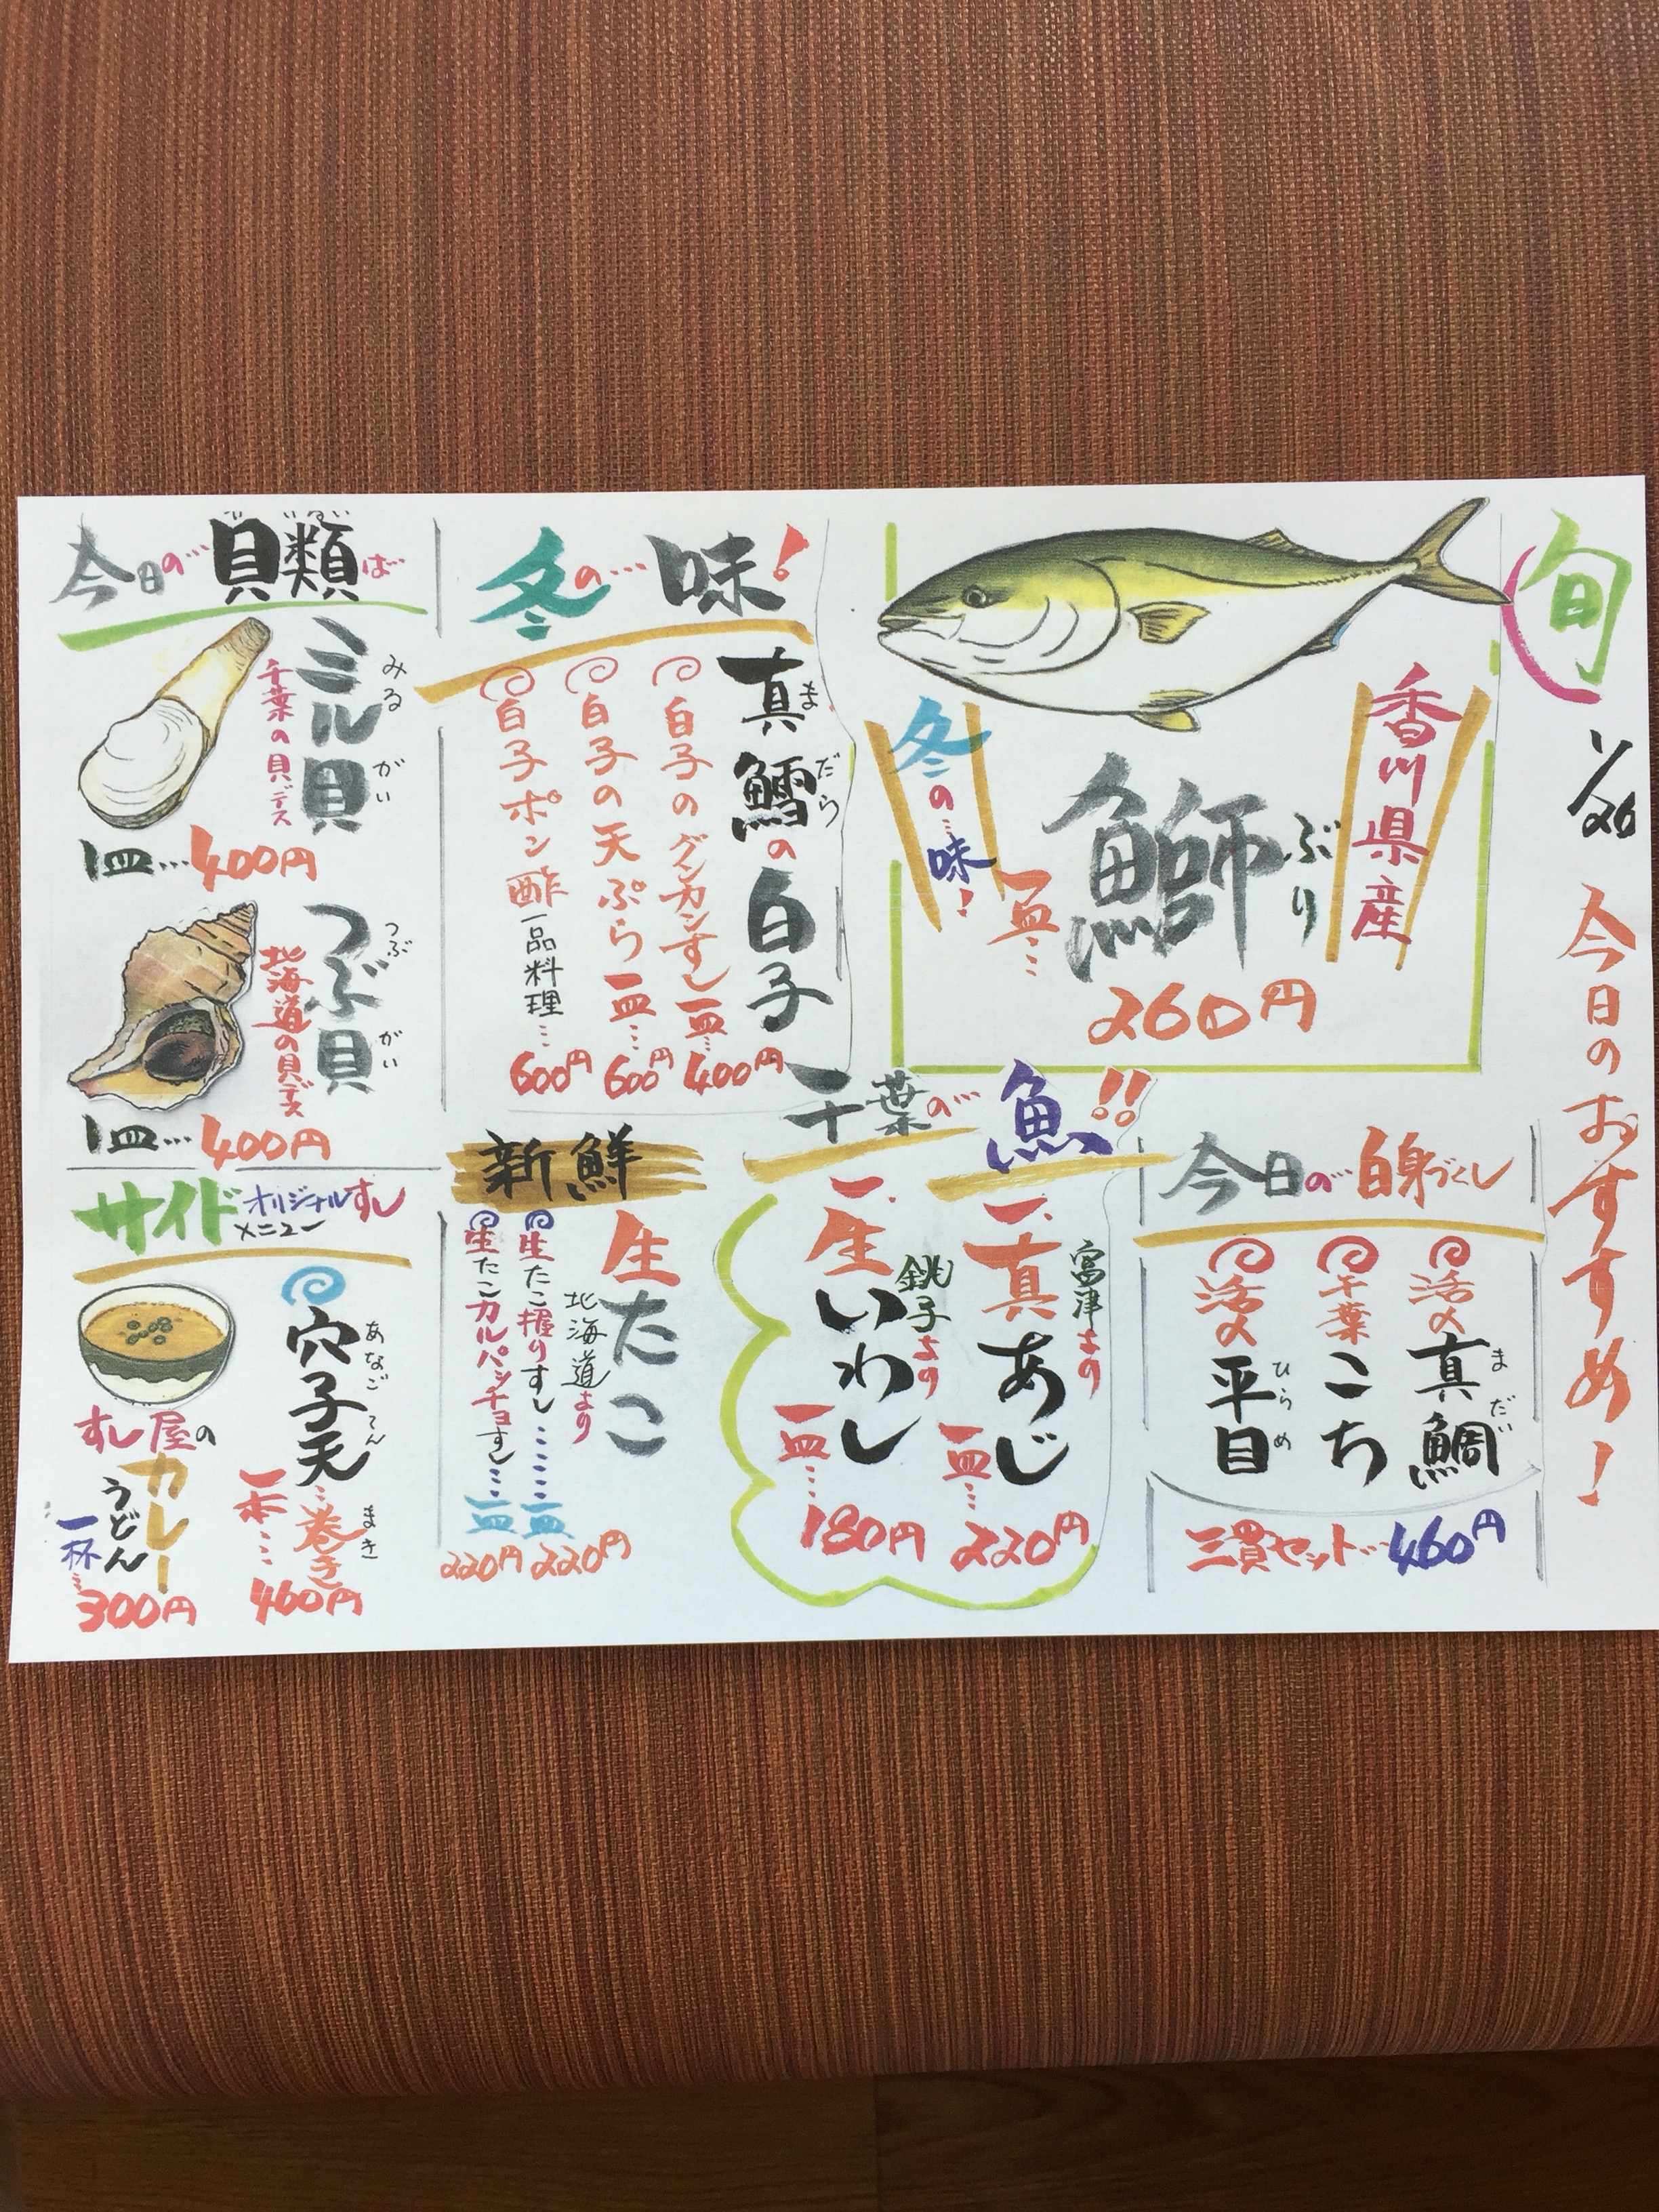 旬
1/26
今日のおすすめ!
香川県産
鰤
ぶり
冬の…味!
一皿…
260円
今日の…白身づくし
活〆真鯛
まだい
千葉こち
活〆平目
ひらめ
三貫セット…460円
千葉の…魚!!
一、真あじ
富津より
一皿…220円
一、生いわし
銚子より
一皿…180円
冬の…味!
真鱈の白子
まだら
白子のグンカンすし一皿…400円
白子の天ぷら一皿…600円
白子ポン酢一品料理…600円
新鮮
生たこ
北海道より
生たこ握りすし…一皿220円
生たこカルパッチョすし…一皿220円
今日の…貝類は…
かいるい
ミル貝
みるがい
千葉の貝デス
1皿…400円
つぶ貝
つぶがい
北海道の貝デス
1皿…400円
サイドメニュー
オリジナルすし
穴子天…巻き
あなごてんまき
一本…460円
すし屋の
カレー
うどん
一杯…300円